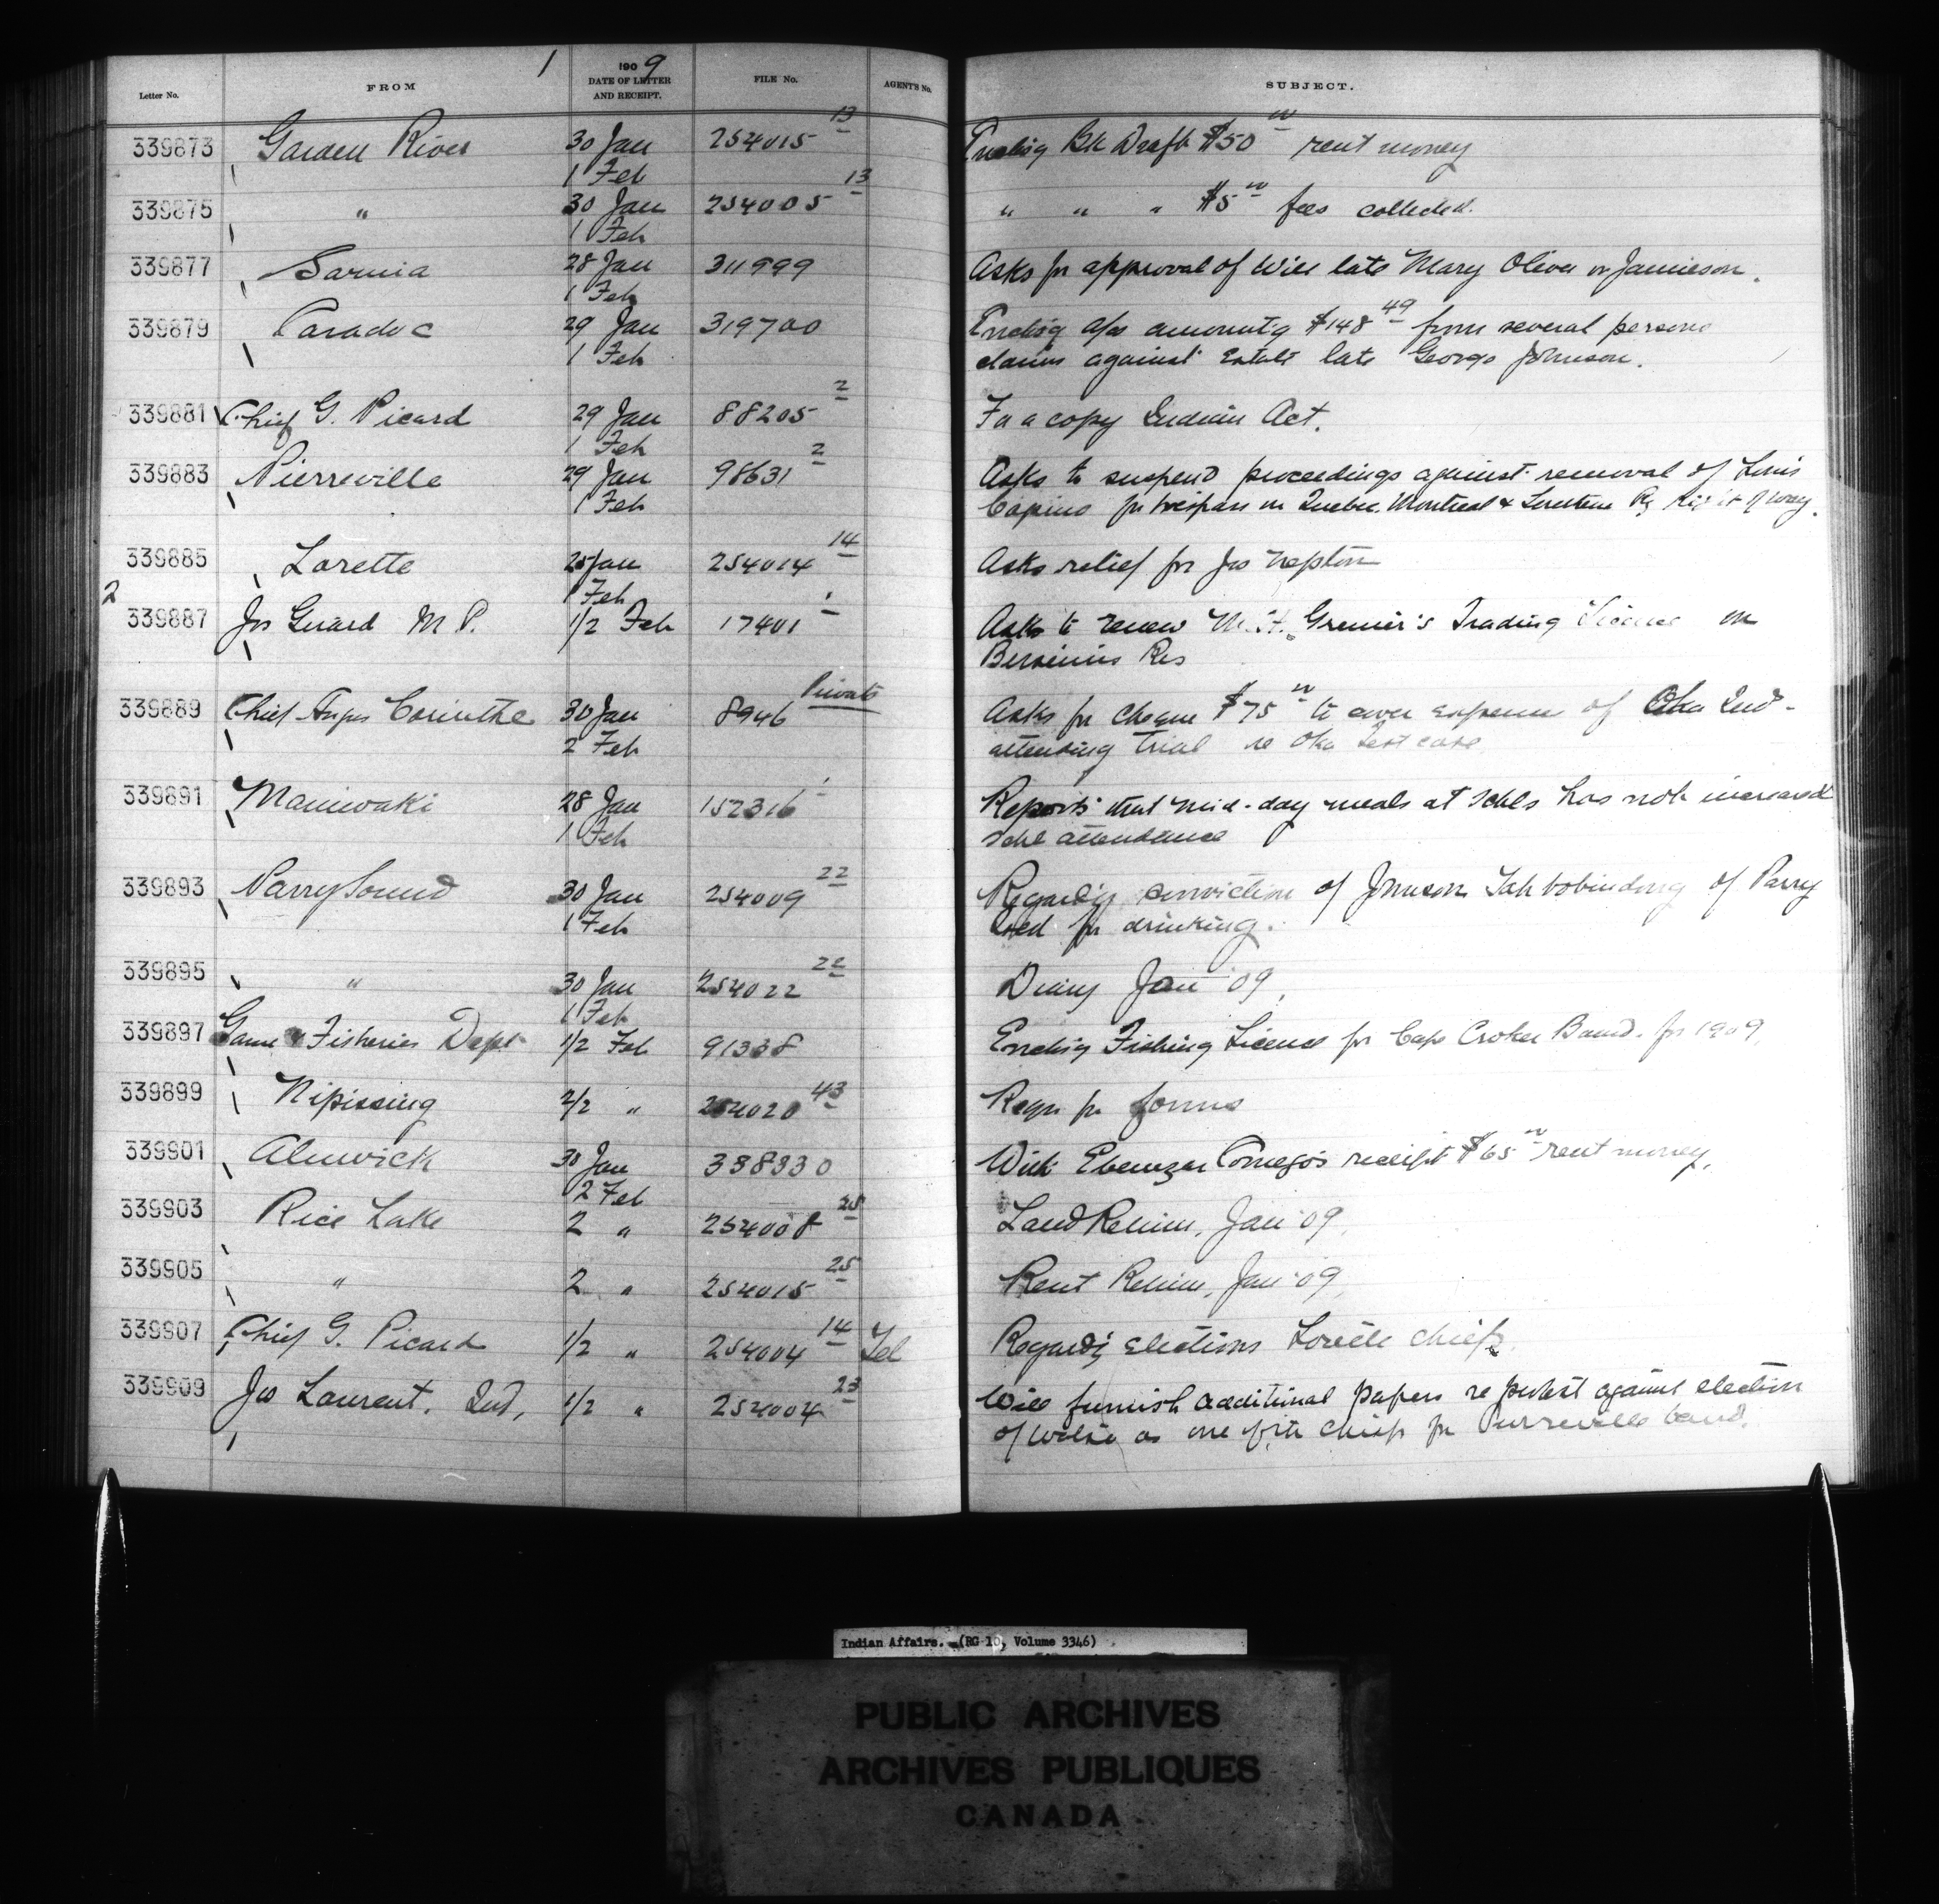 1
Letter No. FROM 1909 DATE OF LETTER AND RECEIPT. FILE No. AGENT'S No. SUBJECT.
339873 Garden River 30 Jan 254015 13 Encl'g Bk Draft $50 00 rent money
1 Feb
339875 " 30 Jan 254005 13 " " " $5 00 fees collected.
1 Feb
339877 Sarnia 28 Jan 311999 Asks for approval of Will late Mary Oliver or Jamieson.
1 Feb
339879 Caradoc 29 Jan 319700 Encl'g a/cs amount'g $148 49 from several persons
1 Feb claims against Estate late George Johnson.
339881 Chief G. Picard 29 Jan 88205 2 For a copy Indian Act.
1 Feb
339883 Pierreville 29 Jan 98631 2 Asks to suspend proceedings against removal of Louis
1 Feb for trespass on Quebec. Montreal & Southern Ry Right of way.
339885 Lorette 25 Jan 254014 14 Asks relief for Jos Nepton
1 Feb
2
339887 Jos Girard M.P. 1/2 Feb 17401 1 Asks to renew Grenier's Trading License on
Bersimis Res
339889 Chief Angus Corinthe 30 Jan 8946 Private Asks for cheque $75 00 to cover expense of Oka Ind-
2 Feb attending trial re Oka test case
339891 Maniwaki 28 Jan 152316 1 Reports that mid-day meals at schls has not increased
1 Feb schl attendance
339893 Parry Sound 30 Jan 254009 22 Regard'g conviction of Johnson of Parry
1 Feb for drinking.
339895 " 30 Jan 254022 22 Diary Jan '09.
1 Feb
339897 Game & Fisheries Dept 1/2 Feb 91338 Encl'g Fishing License for Cape Croker Band. for 1909.
339899 Nipissing 2/2 " 254020 43 Reqn for forms
339901 Alnwick 30 Jan 338330 With Ebenezer Comego's receipt $65 00 rent money.
2 Feb
339903 Rice Lake 2 " 254008 25 Land Return, Jan '09.
339905 " 2 " 254015 25 Rent Return, Jan '09.
339907 Chief G. Picard 1/2 " 254004 14 Tel Regard'g elections Lorette chiefs.
339909 Jos Laurent. Ind, 1/2 " 254004 23 Will furnish additional papers re protest against election
of as one of the chiefs for Pierreville band.
Indian Affairs. (RG 10, Volume 3346)
PUBLIC ARCHIVES
ARCHIVES PUBLIQUES
CANADA